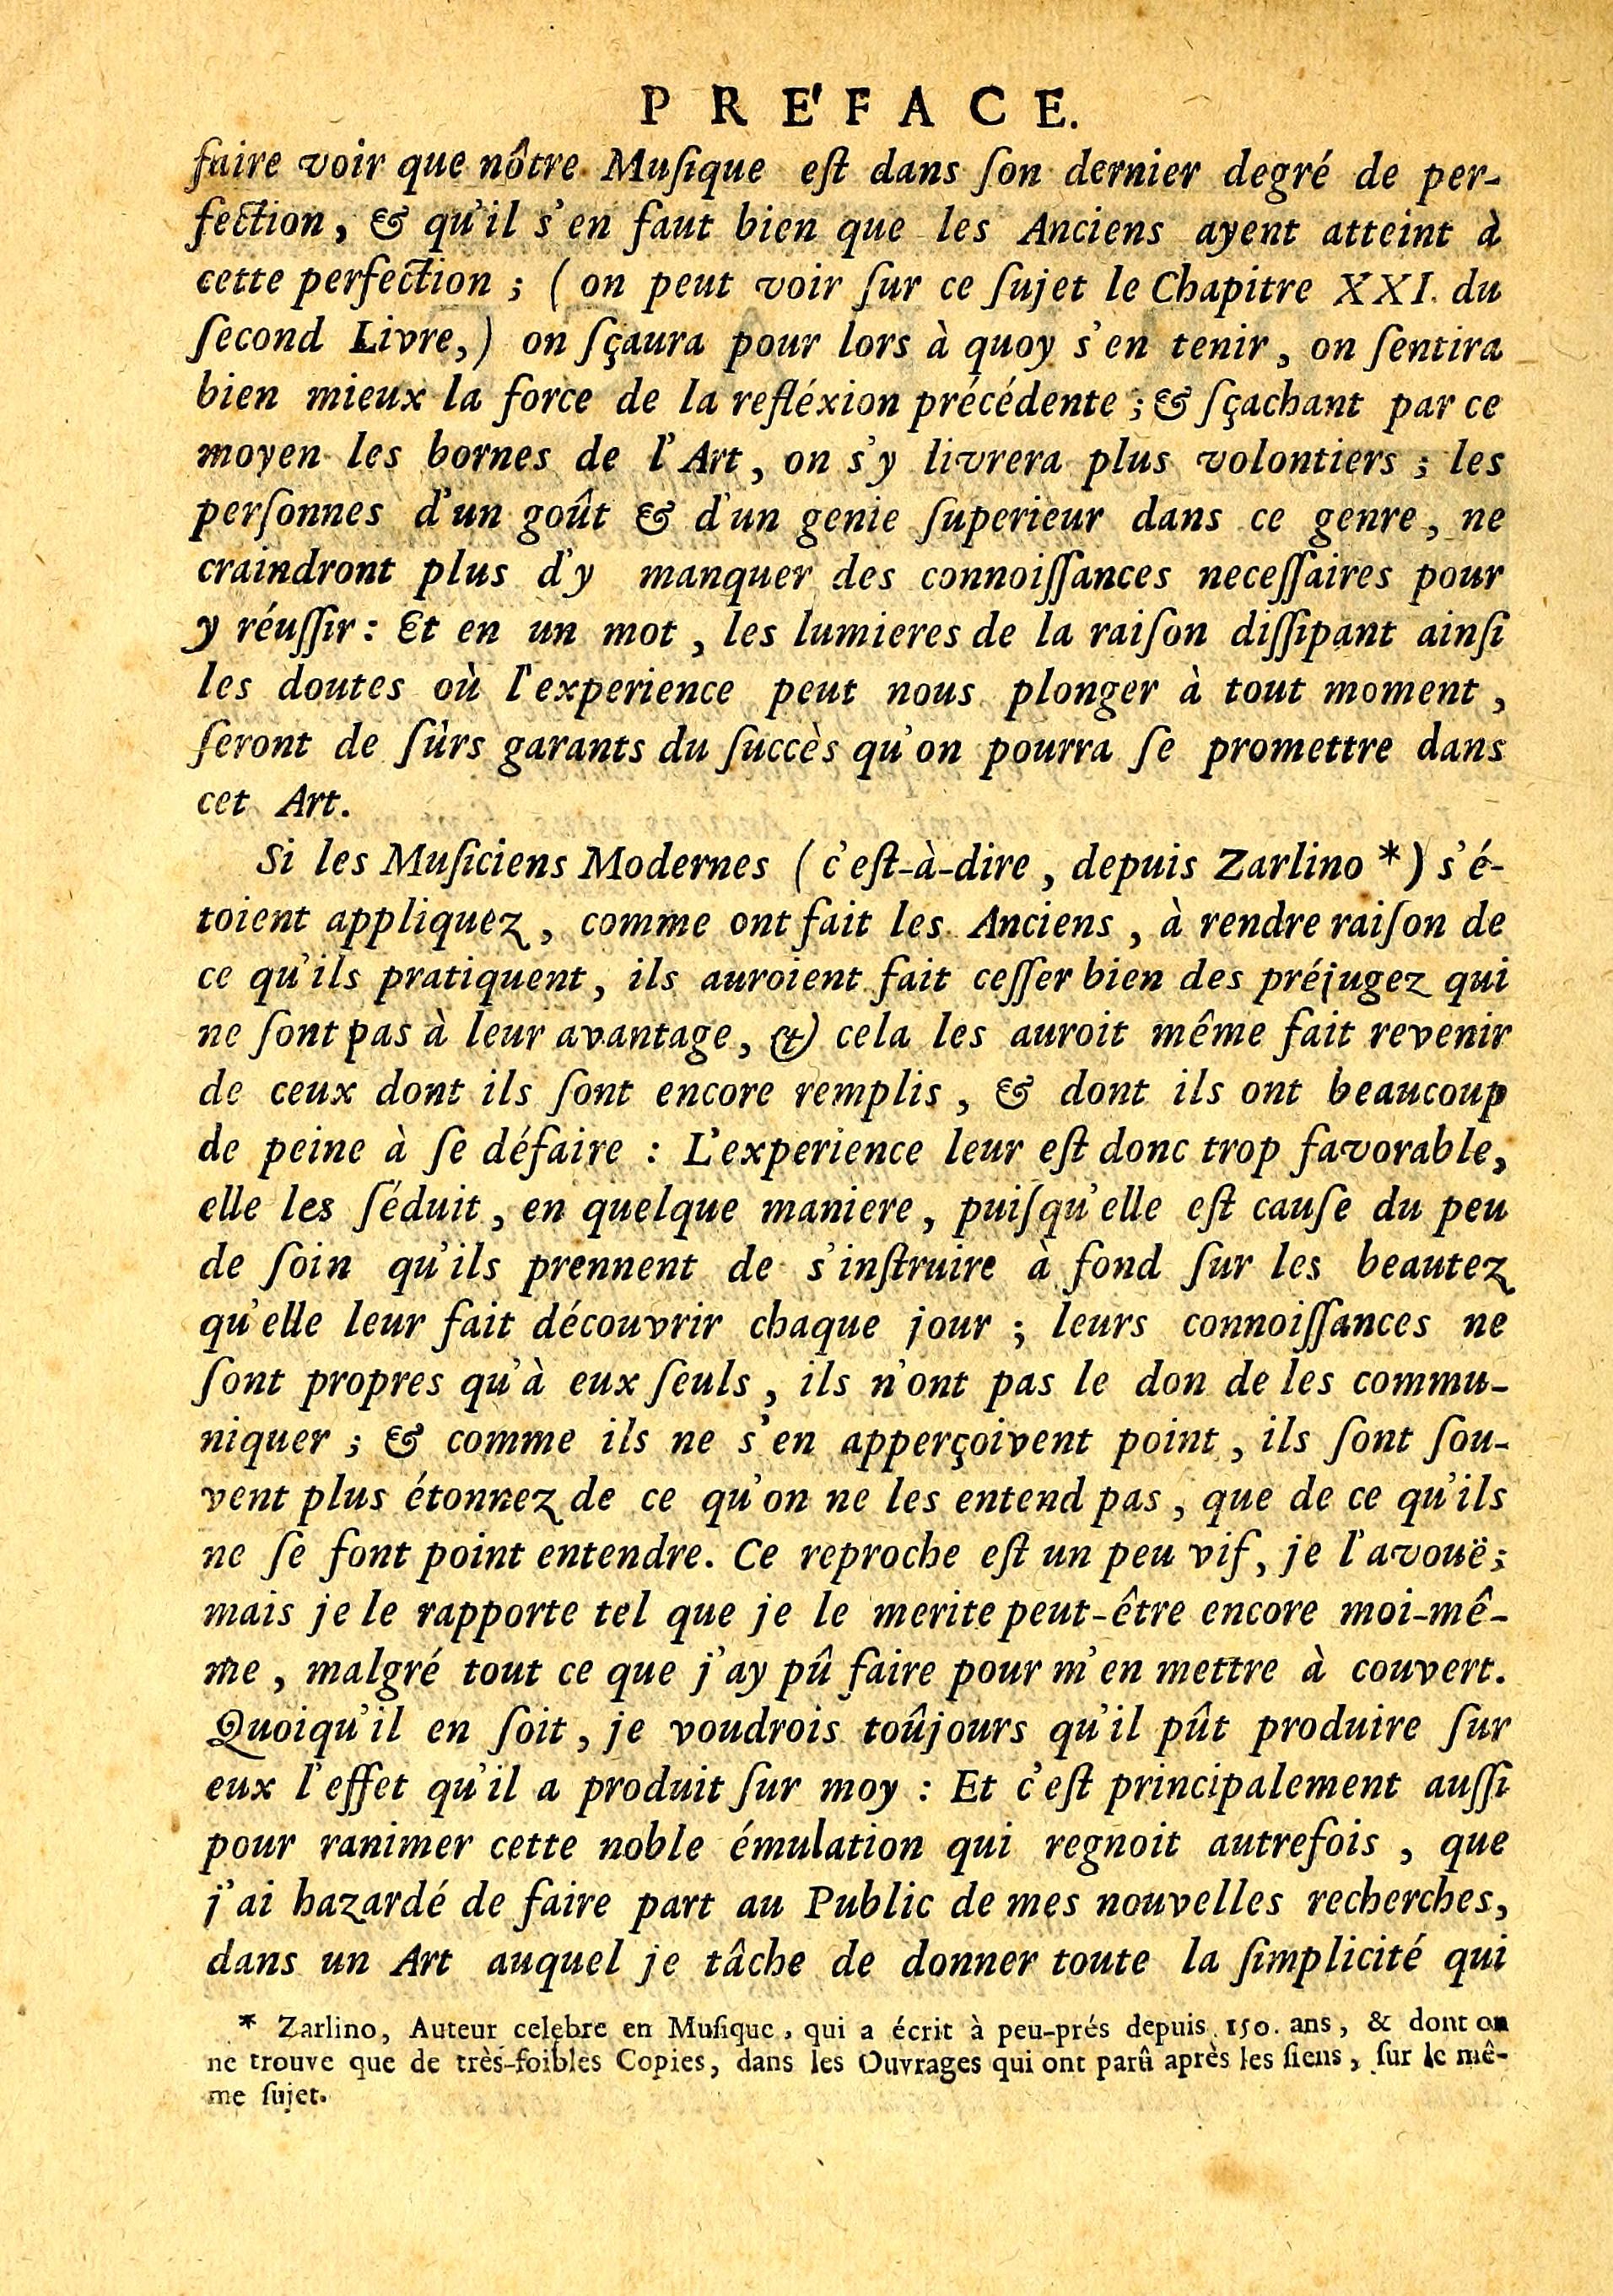 PRE'FACE.
faire voir que nôtre Muſique eſt dans ſon dernier degré de per-
fection, & qu'il s'en faut bien que les Anciens ayent atteint à
cette perfection ; ( on peut voir ſur ce ſujet le Chapitre XXI. du
ſecond Livre, ) on ſçaura pour lors à quoy s'en tenir, on ſentira
bien mieux la force de la refléxion précédente ; & ſçachant par ce
moyen les bornes de l'Art, on s'y livrera plus volontiers ; les
perſonnes d'un goût & d'un genie ſuperieur dans ce genre, ne
craindront plus d'y manquer des connoiſſances neceſſaires pour
y réuſſir : Et en un mot, les lumieres de la raiſon diſſipant ainſi
les doutes où l'experience peut nous plonger à tout moment,
ſeront de ſûrs garants du ſuccès qu'on pourra ſe promettre dans
cet Art.
Si les Muſiciens Modernes ( c'eſt-à-dire, depuis Zarlino * ) s'é-
toient appliquez, comme ont fait les Anciens, à rendre raiſon de
ce qu'ils pratiquent, ils auroient fait ceſſer bien des préjugez qui
ne ſont pas à leur avantage, & cela les auroit même fait revenir
de ceux dont ils ſont encore remplis, & dont ils ont beaucoup
de peine à ſe défaire : L'experience leur eſt donc trop favorable,
elle les ſéduit, en quelque maniere, puiſqu'elle eſt cauſe du peu
de ſoin qu'ils prennent de s'inſtruire à fond ſur les beautez
qu'elle leur fait découvrir chaque jour ; leurs connoiſſances ne
ſont propres qu'à eux ſeuls, ils n'ont pas le don de les commu-
niquer ; & comme ils ne s'en apperçoivent point, ils ſont ſou-
vent plus étonnez de ce qu'on ne les entend pas, que de ce qu'ils
ne ſe font point entendre. Ce reproche eſt un peu vif, je l'avouë ;
mais je le rapporte tel que je le merite peut-être encore moi-mê-
me, malgré tout ce que j'ay pû faire pour m'en mettre à couvert.
Quoiqu'il en ſoit, je voudrois toûjours qu'il pût produire ſur
eux l'effet qu'il a produit ſur moy : Et c'eſt principalement auſſi
pour ranimer cette noble émulation qui regnoit autrefois, que
j'ai hazardé de faire part au Public de mes nouvelles recherches,
dans un Art auquel je tâche de donner toute la ſimplicité qui
* Zarlino, Auteur celebre en Muſique, qui a écrit à peu-prés depuis 150. ans, & dont on
ne trouve que de très-foibles Copies, dans les Ouvrages qui ont parû après les ſiens, ſur le mê-
me ſujet.